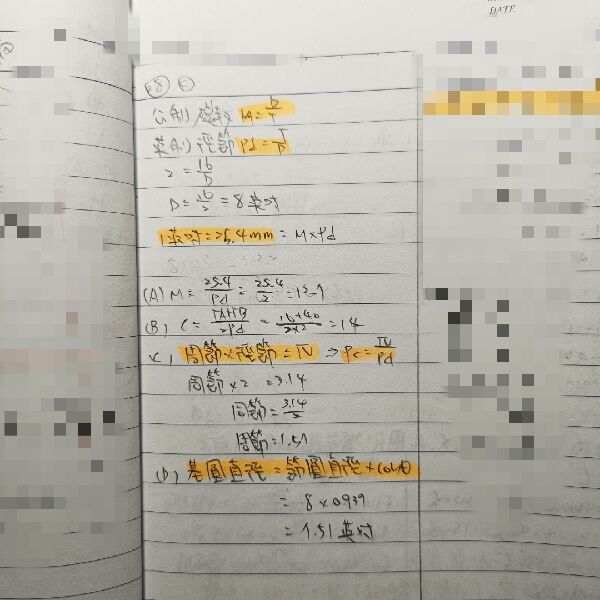 DATE
公制模數 M=D/T
英制徑節 Pd=T/D
2=16/D
D=16/2=8英吋
1英吋=25.4mm=M×Pd
(A) M=25.4/Pd=25.4/2=12.7
(B) C=TA+TB/2Pd=16+40/2×2=14
(C) 周節×徑節=π ⇒ Pc=π/Pd
周節×2=3.14
周節=3.14/2
周節=1.57
(D) 基圓直徑=節圓直徑×cosθ
=8×0.939
=7.51英吋